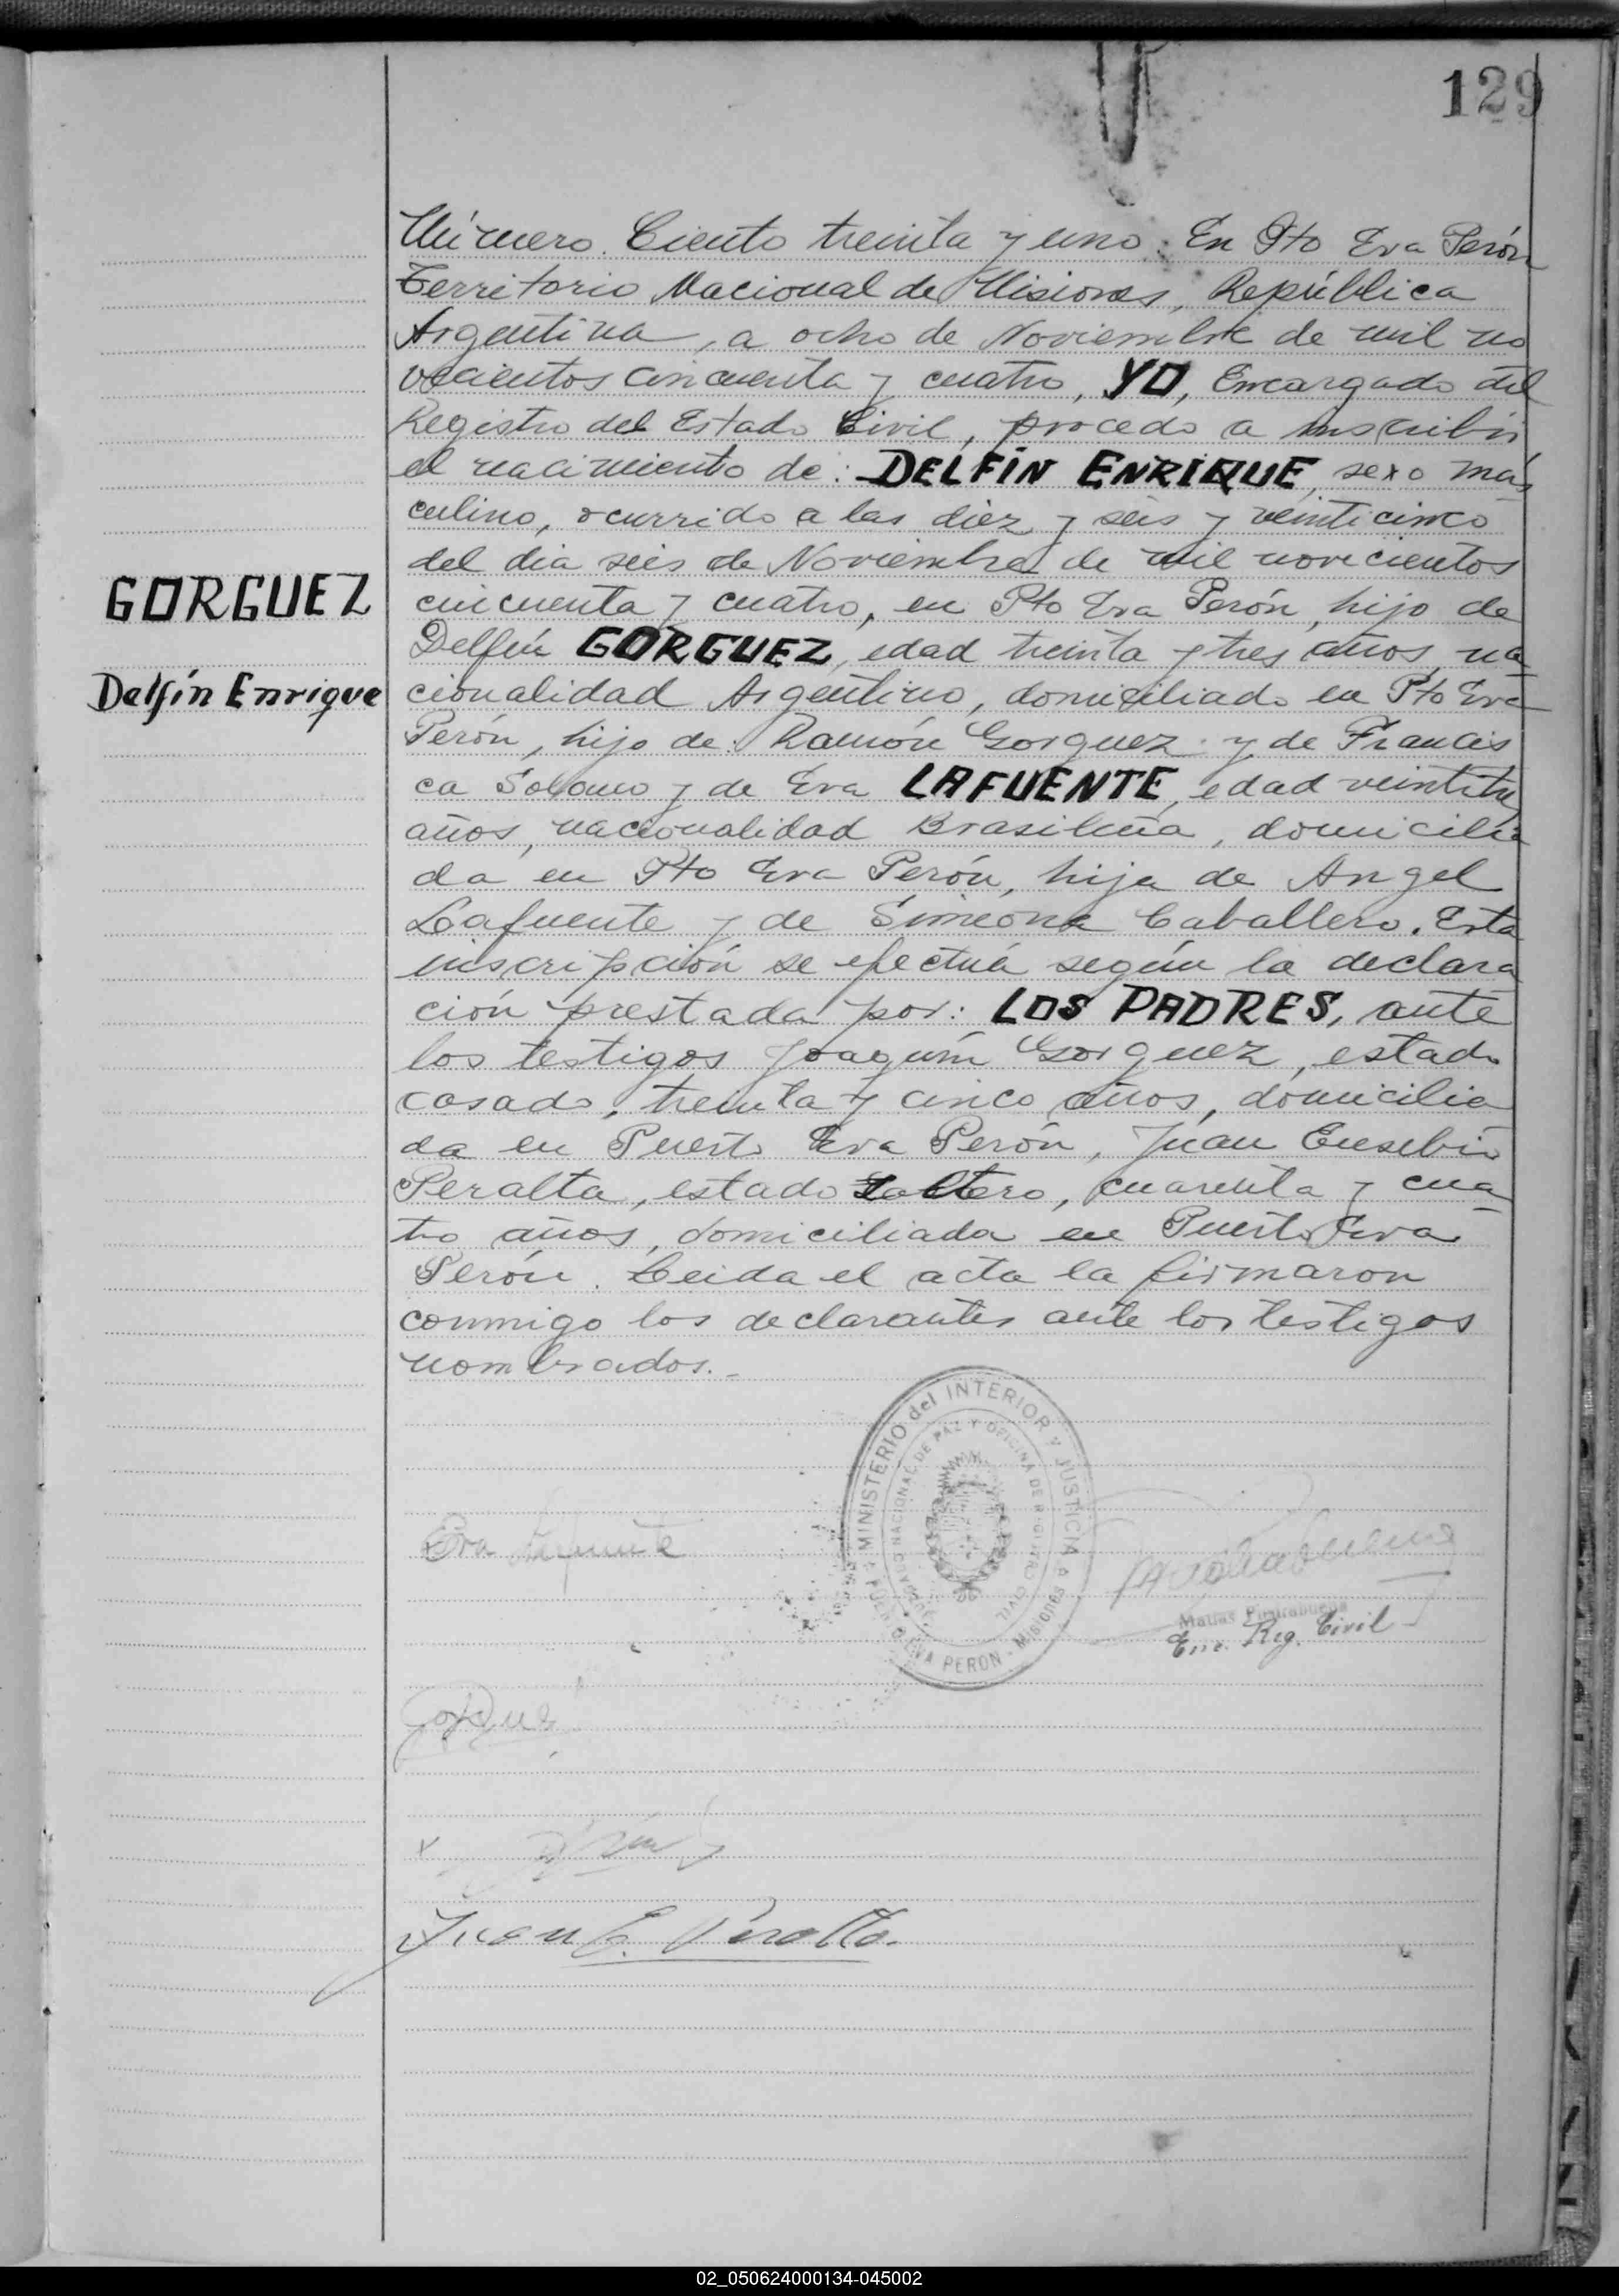 129
Número. Ciento treinta y uno: En Pto Eva Perón
Territorio Nacional de Misiones, República
Argentina, a ocho de Noviembre de mil no
vecientos cincuenta y cuatro, YO, Encargado del
Registro del Estado Civil, procedo a inscribir
el nacimiento de: DELFÍN ENRIQUE, sexo mas
culino, ocurrido a las diez y seis y veinticinco
del dia seis de Noviembre de mil novecientos
GORGUEZ
cincuenta y cuatro, en Pto Eva Perón, hijo de
Delfín GORGUEZ, edad treinta y tres años, na
Delfín Enrique
cionalidad Argentino, domiciliado en Pto Eva
Perón, hijo de: Ramón Gorguez y de Francis
ca Solano y de Eva LAFUENTE, edad veintitres
años, nacionalidad Brasileña, domicilia
da en Pto Eva Perón, hija de Angel
Lafuente y de Simeona Caballero. Esta
inscripción se efectúa según la declara
ción prestada por: LOS PADRES, ante
los testigos Joaquín Gorguez, estado
casado, treinta y cinco años, domicilia
da en Puerto Eva Perón, Juan Eusebio
Peralta, estado soltero, cuarenta y cua
tro años, domiciliada en Puerto Eva
Perón. Leida el acta la firmaron
conmigo los declarantes ante los testigos
nombrados.-
MINISTERIO del INTERIOR y JUSTICIA
JUZGADO NACIONAL DE PAZ Y OFICINA DE REGISTRO CIVIL
PUERTO EVA PERON - Misiones
Eva Lafuente
Matias
Enc. Reg. Civil
Gorguez
x
Juan E. Peralta.
02_050624000134-045002